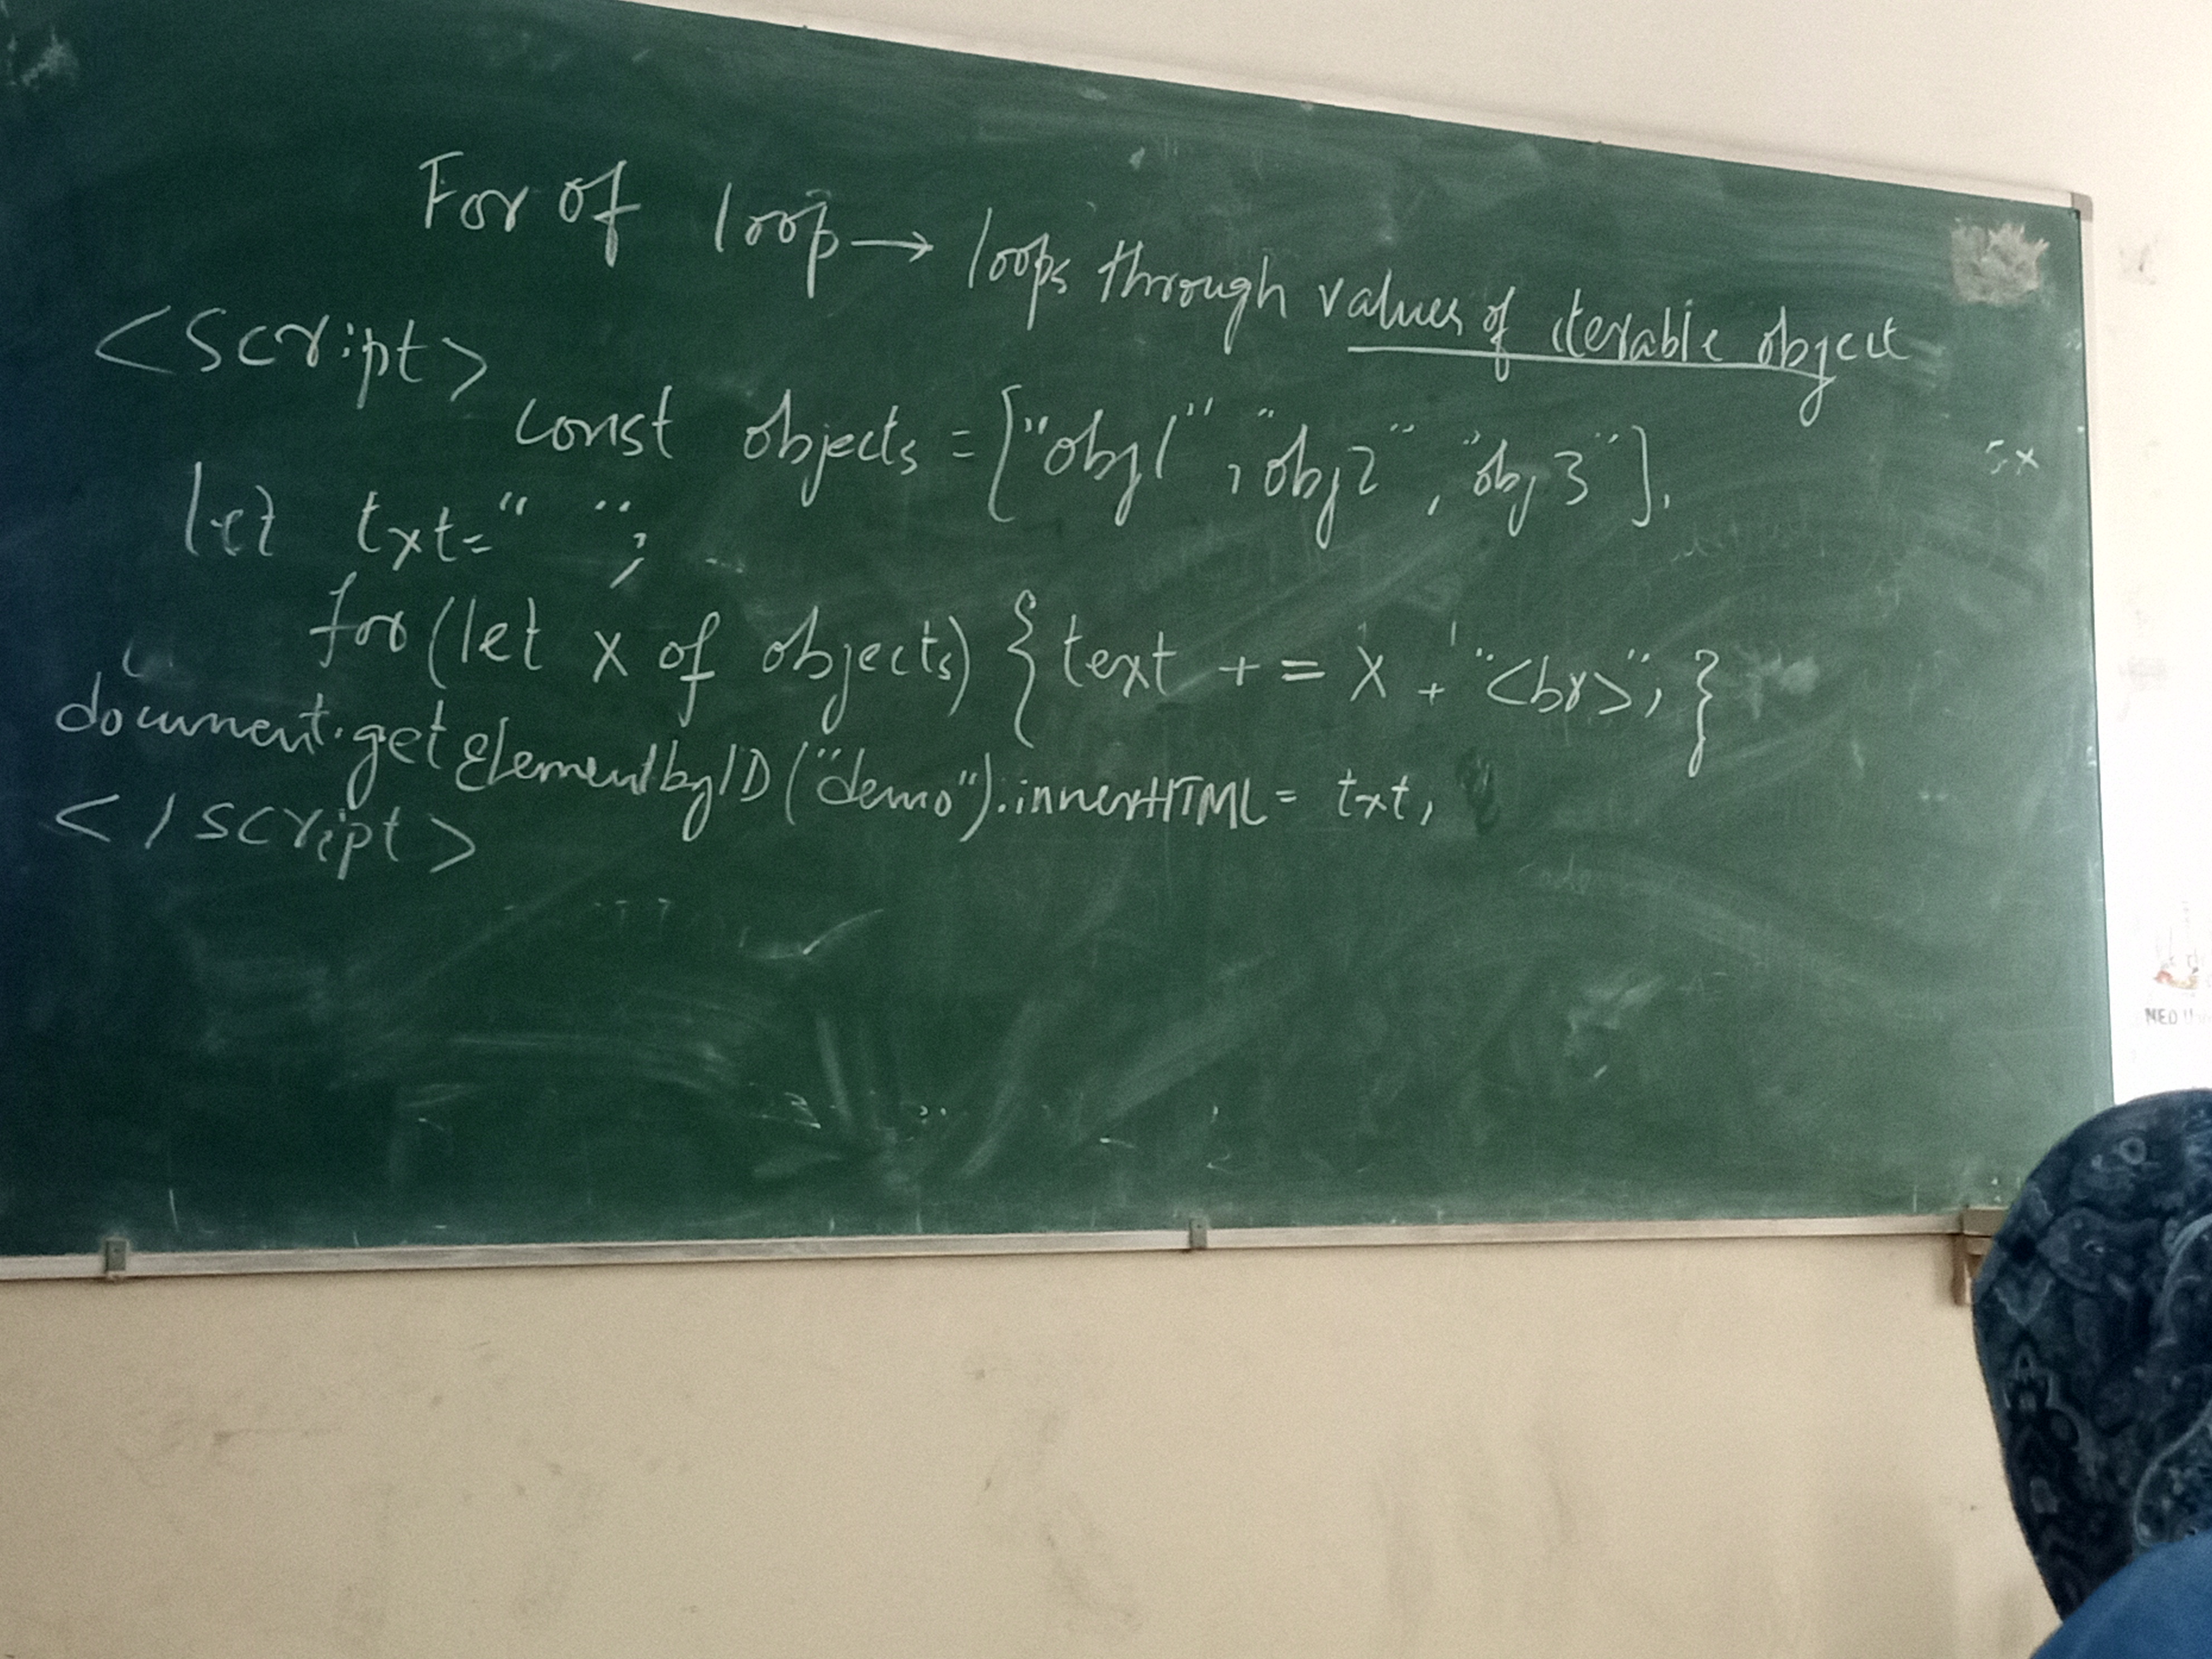 For of loop → loops through values of iterable object
<script>
const objects = ["obj1", "obj2", "obj3"].
let txt=" ";
for (let x of objects) { text += x + "<br>"; }
document.getElementbyID("demo").innerHTML = txt,
</script>